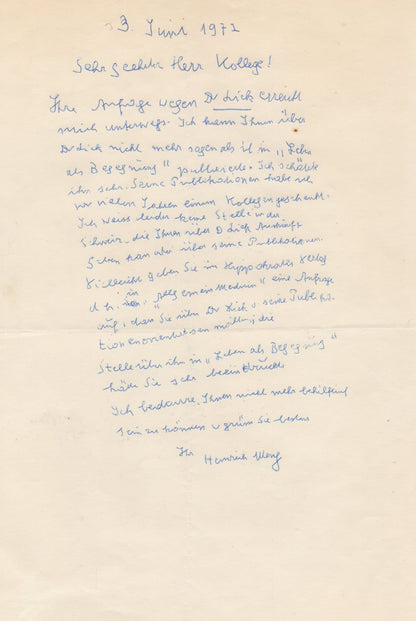 3. Juni 1971
Sehr geehrter Herr Kollege!
Ihre Anfrage wegen Dr Lick erreicht
mich unterwegs. Ich kann Ihnen über
Dr Lick nicht mehr sagen als ich in „Leben
als Begegnung" publizierte. Ich schätzte
ihn sehr. Seine Publikationen habe ich
vor vielen Jahren einem Kollegen geschenkt.
Ich weiss leider keine Stelle in der
Schweiz, die Ihnen über D Lick Auskunft
geben kann oder über seine Publikationen.
Vielleicht geben Sie im Hippokrates Verlag
d.h. in „Allgemeinmedizin" eine Anfrage
auf, dass Sie über Dr Lick u seine Publika-
tionen orientiert sein möchten, die
Stelle über ihn in „Leben als Begegnung"
hätte Sie sehr beeindruckt
Ich bedaure, Ihnen nicht mehr behilflich
sein zu können u grüsse Sie bestens
Ihr
Heinrich Meng